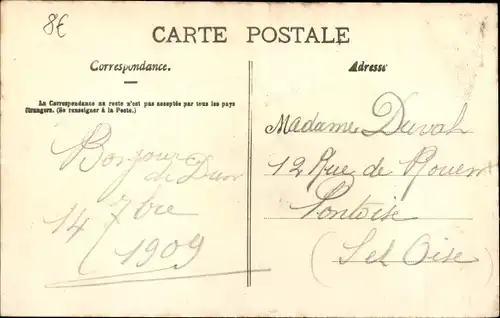 8€
CARTE POSTALE
Correspondance.
Adresse
La Correspondance au recto n'est pas acceptée par tous les pays
étrangers. (Se renseigner à la Poste.)
Bonjour
de Dun
14 7bre
1909
Madame Duval
12 Rue de Rouen
Pontoise
(Set Oise)